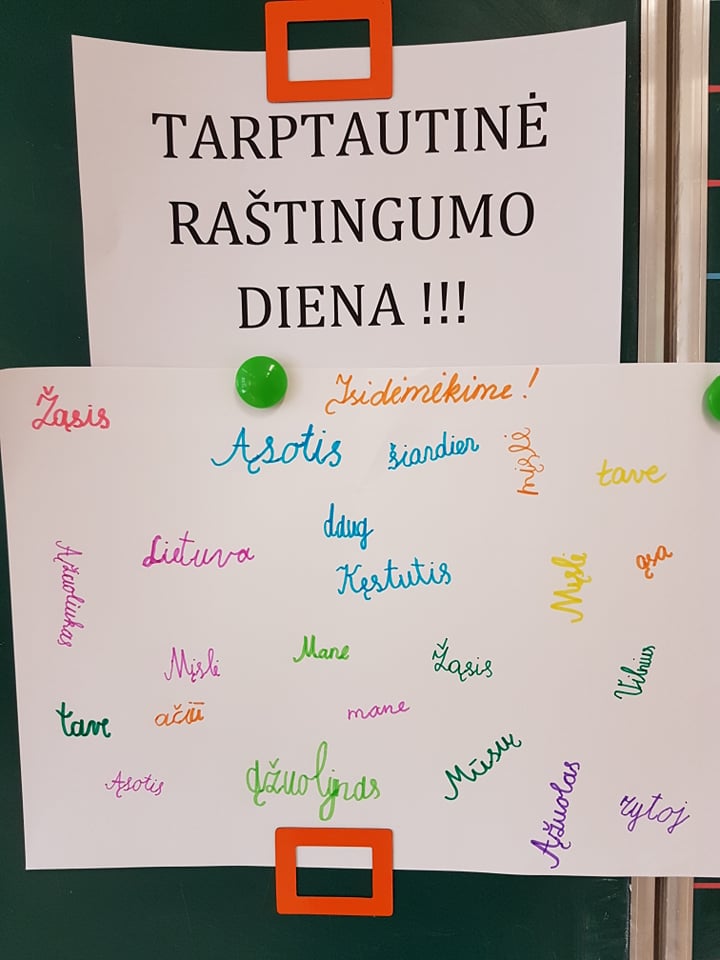 TARPTAUTINĖ
RAŠTINGUMO
DIENA !!!
Įsidėmėkime!
Žąsis
Ąsotis
šiandien
mįslė
tave
Lietuva
daug
Kęstutis
Ąžuoliukas
Mįslė
ąsa
Mįslė
Mane
Žąsis
Vilnius
tave
ačiū
mane
Ąsotis
Mūsų
Ąžuolas
rytoj